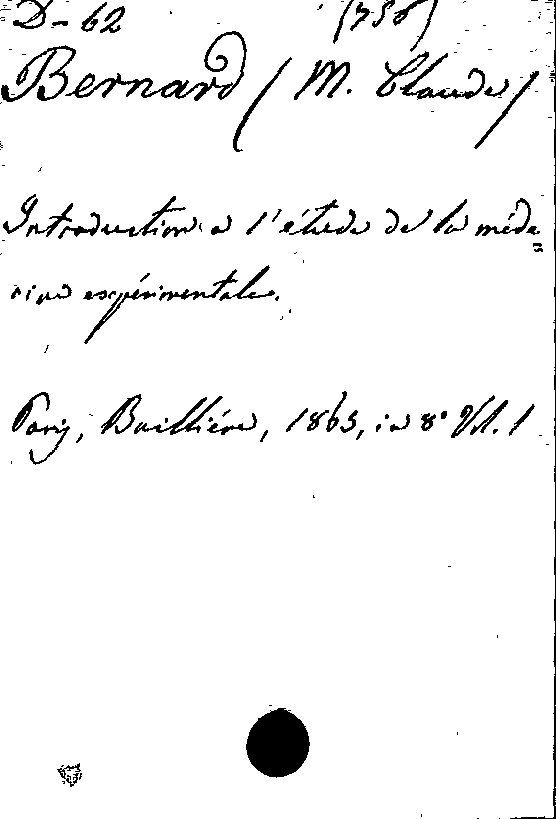 D-62 (756)
Bernard (M. Claude)
Introduction a l'étude de la méde=
cine expérimentale.
Paris, Baillière, 1865, in 8° Vol. 1